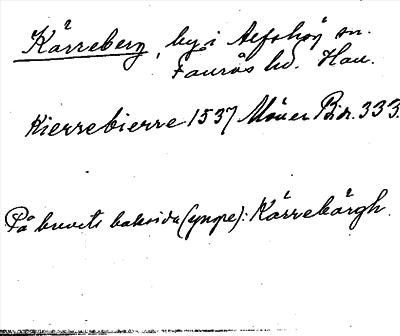 Kärreberg, by i Aefshöj sn.
Faurås hd. Hall.
Kierrebierre 1537 Möller Bidr. 333.
På brevets baksida (yngre): Kärrebärgh.